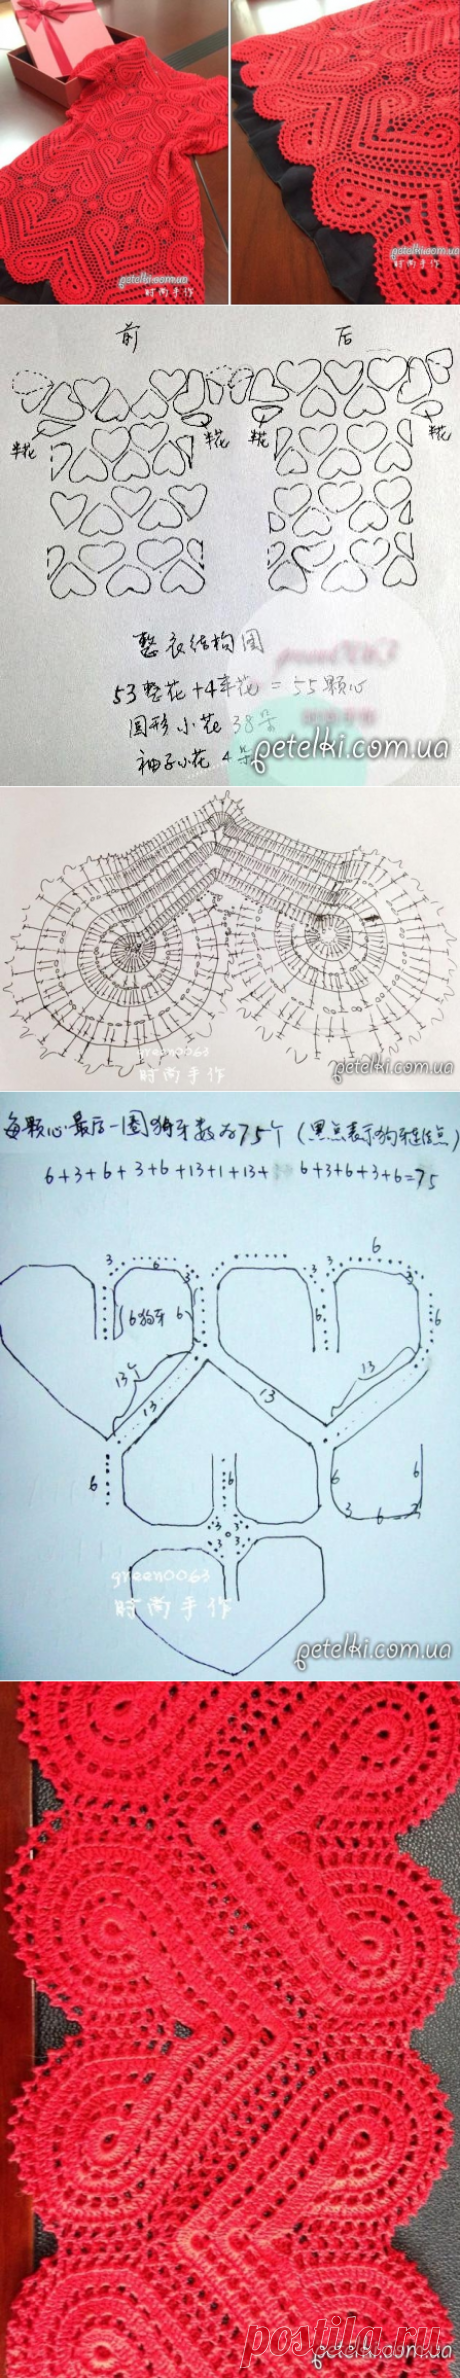 petelki.com.ua
时尚手作
petelki.com.ua
时尚手作
前
后
半花
半花
半花
半花
整衣结构图
53整花+4半花=55颗心
圆形小花38朵
袖子小花4朵
petelki.com.ua
green0063
时尚手作
petelki.com.ua
每颗心最后一圈狗牙数为75个(黑点表示狗牙连接点)
6+3+6+3+6+13+1+13+6+3+6+3+6=75
6
3
6
3
3
3
3
6狗牙
6
6
6
13个
13
13
13
6
6
6
6
3
6
3
3
3
3
3
green0063
时尚手作
petelki.com.ua
postila.ru
petelki.com.ua